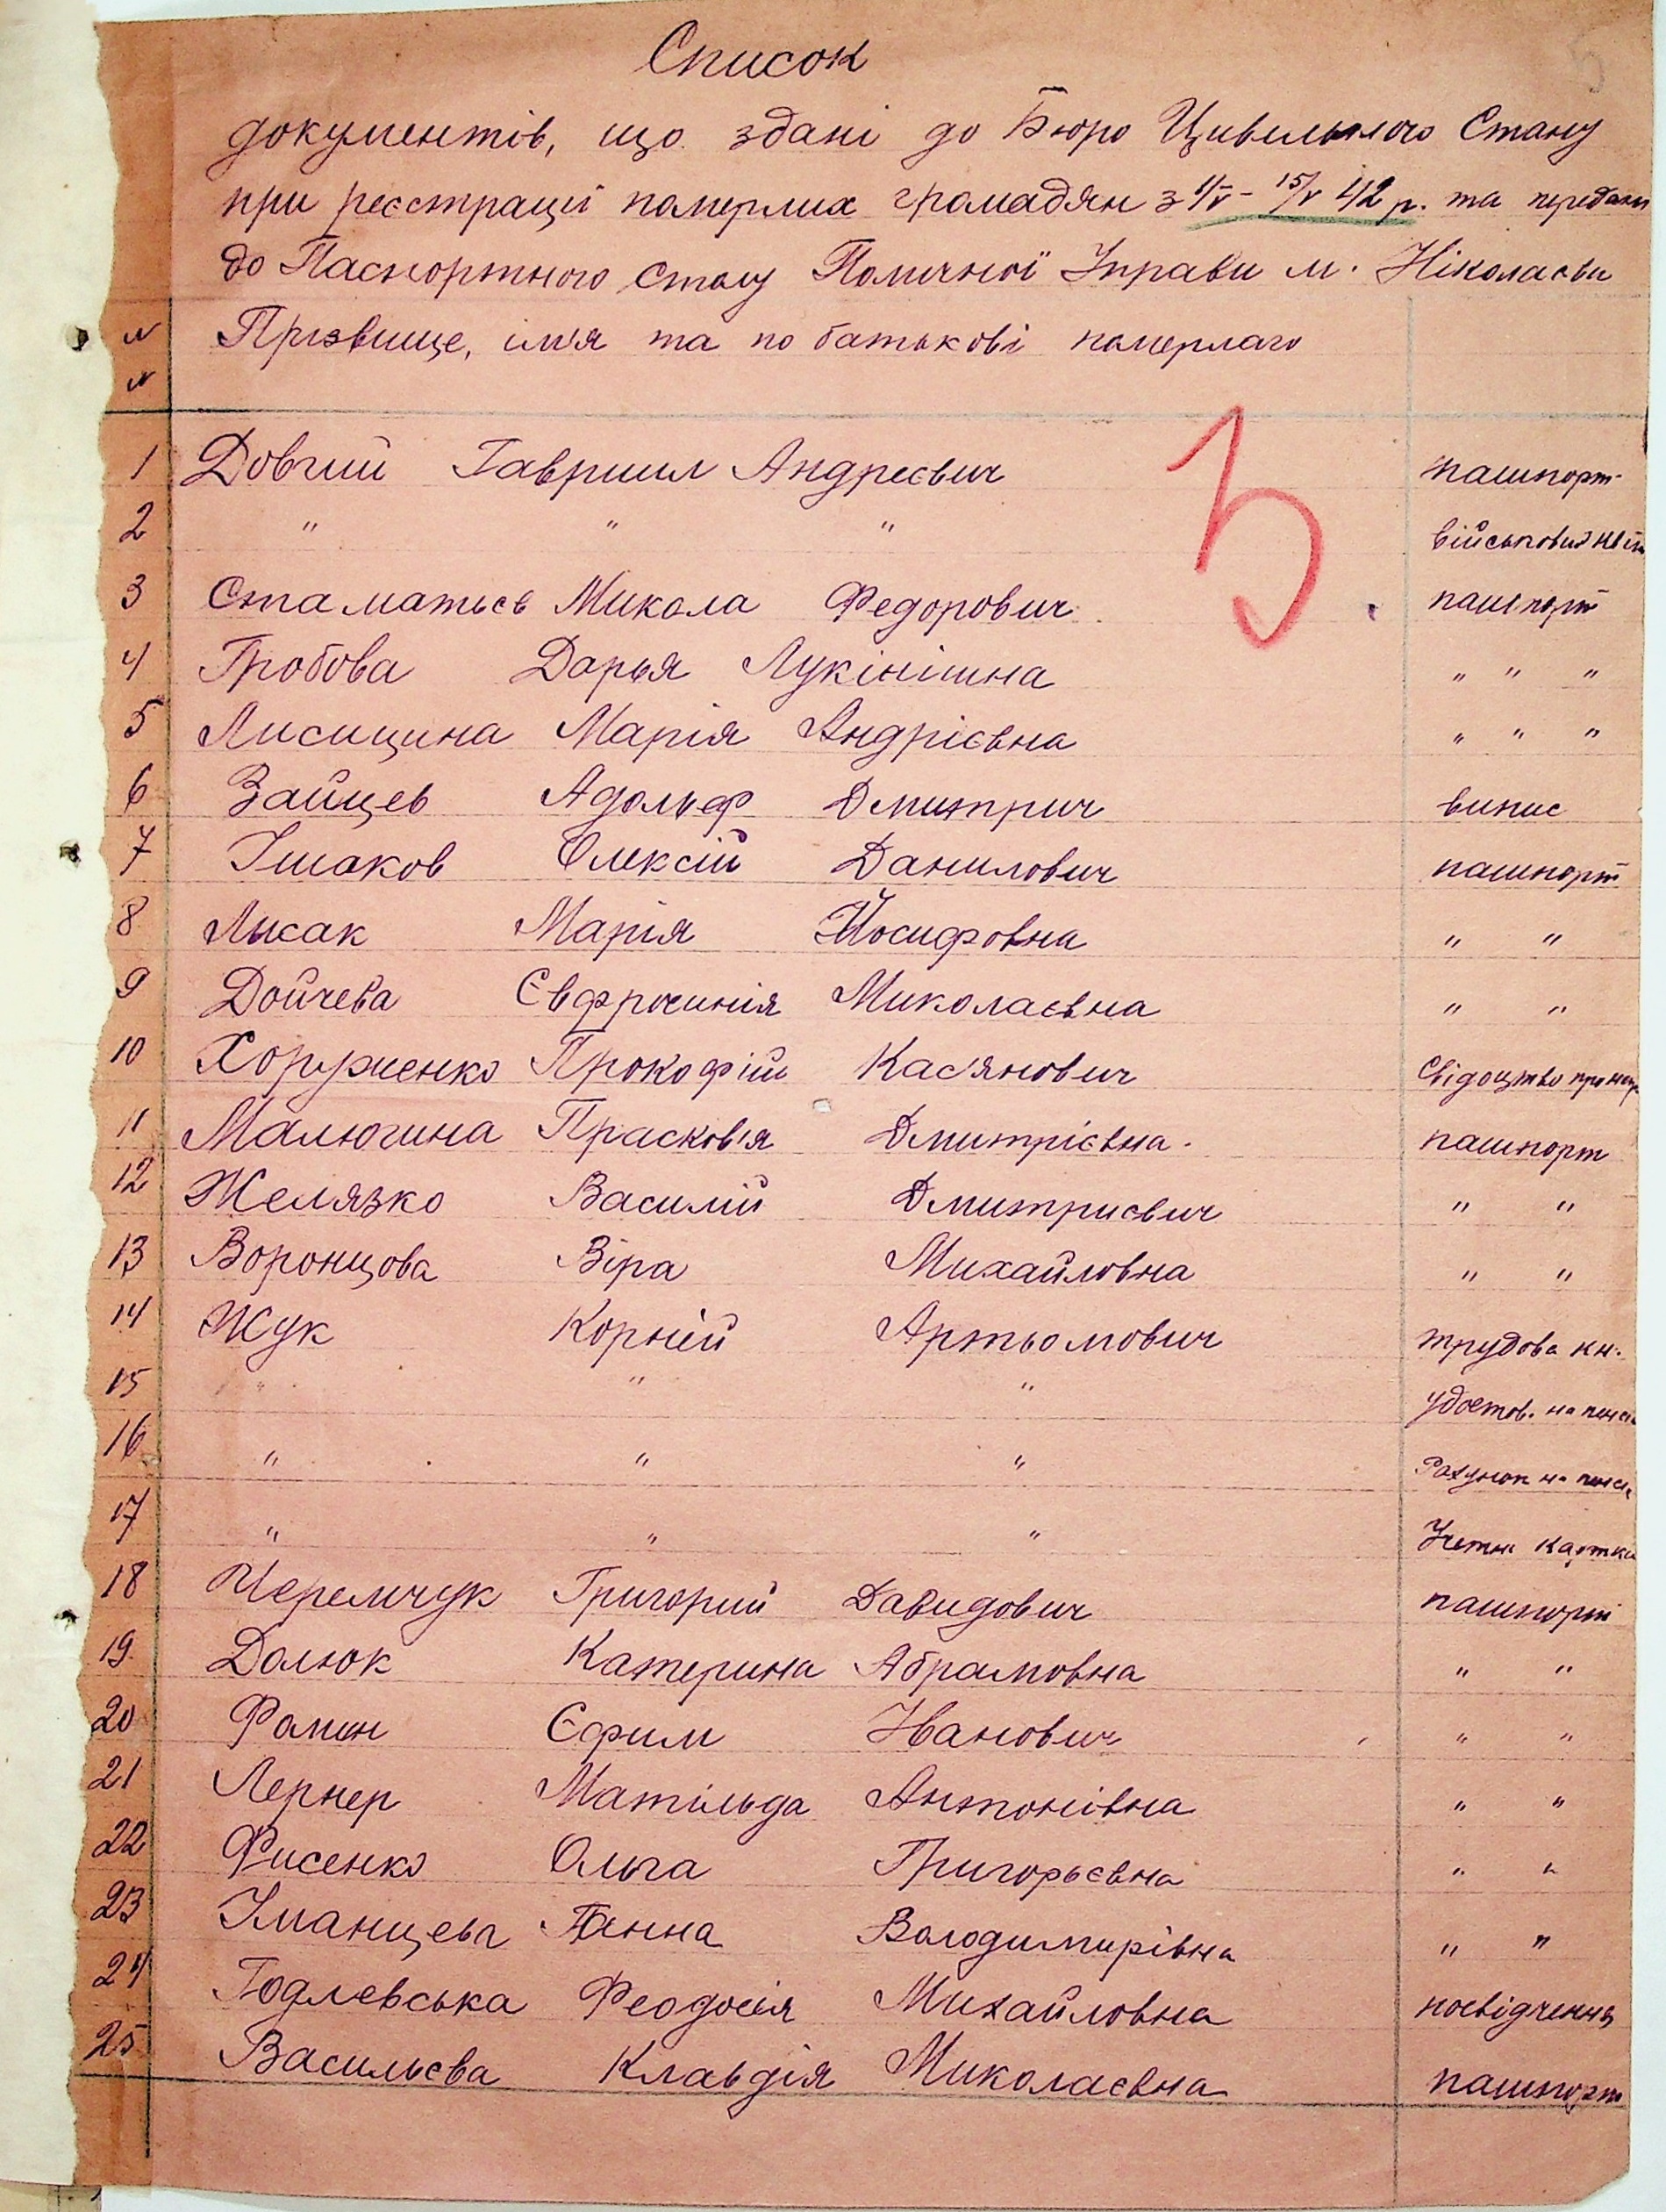 5
Список
документів, що здані до Бюро Цивельного Стану
при реєстрації померлих громадян з 1/V - 15/V 42 р. та передані
до Паспортного столу Поличної Управи м. Ніколаєва
№ Прізвище, імя та по батькові померлаго
№
1 Довгий Гавриил Андреєвич пашпорт
2 " " " військовий квит
3 Стаматьєв Микола Федорович пашпорт
4 Гробова Дарья Лукінішна " " "
5 Лисицина Марія Андрієвна " " "
6 Зайцев Адольф Дмитрич випис
7 Ішаков Олексій Данилович пашпорт
8 Лысак Марія Йосифовна " "
9 Дойчева Євфросинія Миколаєвна " "
10 Хорженко Прокофій Кас'янович Свідоцтво про
11 Малюгина Прасков'я Дмитрієвна пашпорт
12 Желязко Василій Дмитриєвич " "
13 Воронцова Віра Михайловна " "
14 Жук Корній Артьомович трудова кн.
15 " " " удостов. на пенсі
16 " " " Рахунок на пенсі
17 " " " Учетна картка
18 Черемчук Григорий Давидович пашпорт
19 Долюк Катерина Абрамовна " "
20 Фомин Єфим Іванович " "
21 Лернер Матільда Антонівна " "
22 Фисенко Ольга Григорьєвна " "
23 Уманцева Ганна Володимирівна " "
24 Годлевська Феодосія Михайловна посвідчення
25 Васильєва Клавдія Миколаєвна пашпорт